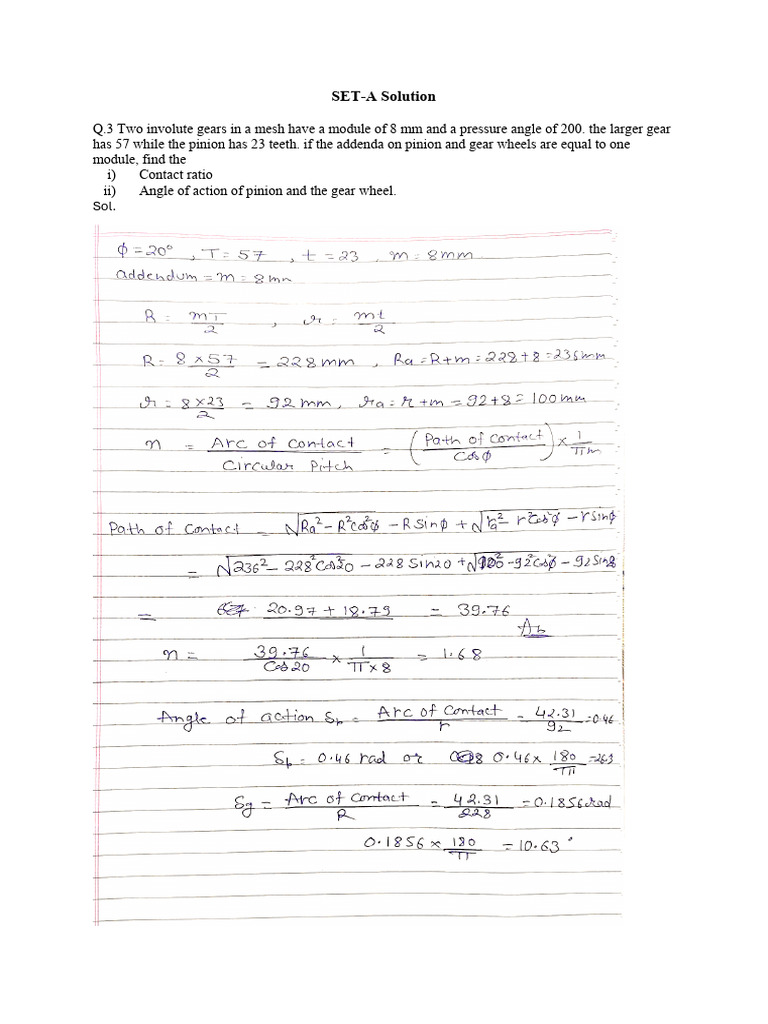 SET-A Solution
Q.3 Two involute gears in a mesh have a module of 8 mm and a pressure angle of 200. the larger gear
has 57 while the pinion has 23 teeth. if the addenda on pinion and gear wheels are equal to one
module, find the
i) Contact ratio
ii) Angle of action of pinion and the gear wheel.
Sol.
ϕ = 20° , T = 57 , t = 23 , m = 8mm
addendum = m = 8mm
R = mT/2 , r = mt/2
R = 8×57/2 = 228mm , Ra = R+m = 228+8 = 236mm
r = 8×23/2 = 92mm, ra = r+m = 92+8 = 100mm
n = Arc of contact/Circular Pitch = (Path of contact/Cosϕ) × 1/πm
Path of contact = √Ra²-R²cos²ϕ - R sinϕ + √ra²-r²cos²ϕ - r sinϕ
= √236²-228²Cos²20 - 228 Sin20 + √100²-92²cos²ϕ - 92 Sin
= 20.97 + 18.79 = 39.76
n = 39.76/Cos20 × 1/π×8 = 1.68
Angle of action Sp = Arc of Contact/r = 42.31/92 = 0.46
Sp = 0.46 rad or 0.46× 180/π = 26.3
Sg = Arc of Contact/R = 42.31/228 = 0.1856rad
0.1856 × 180/π = 10.63°